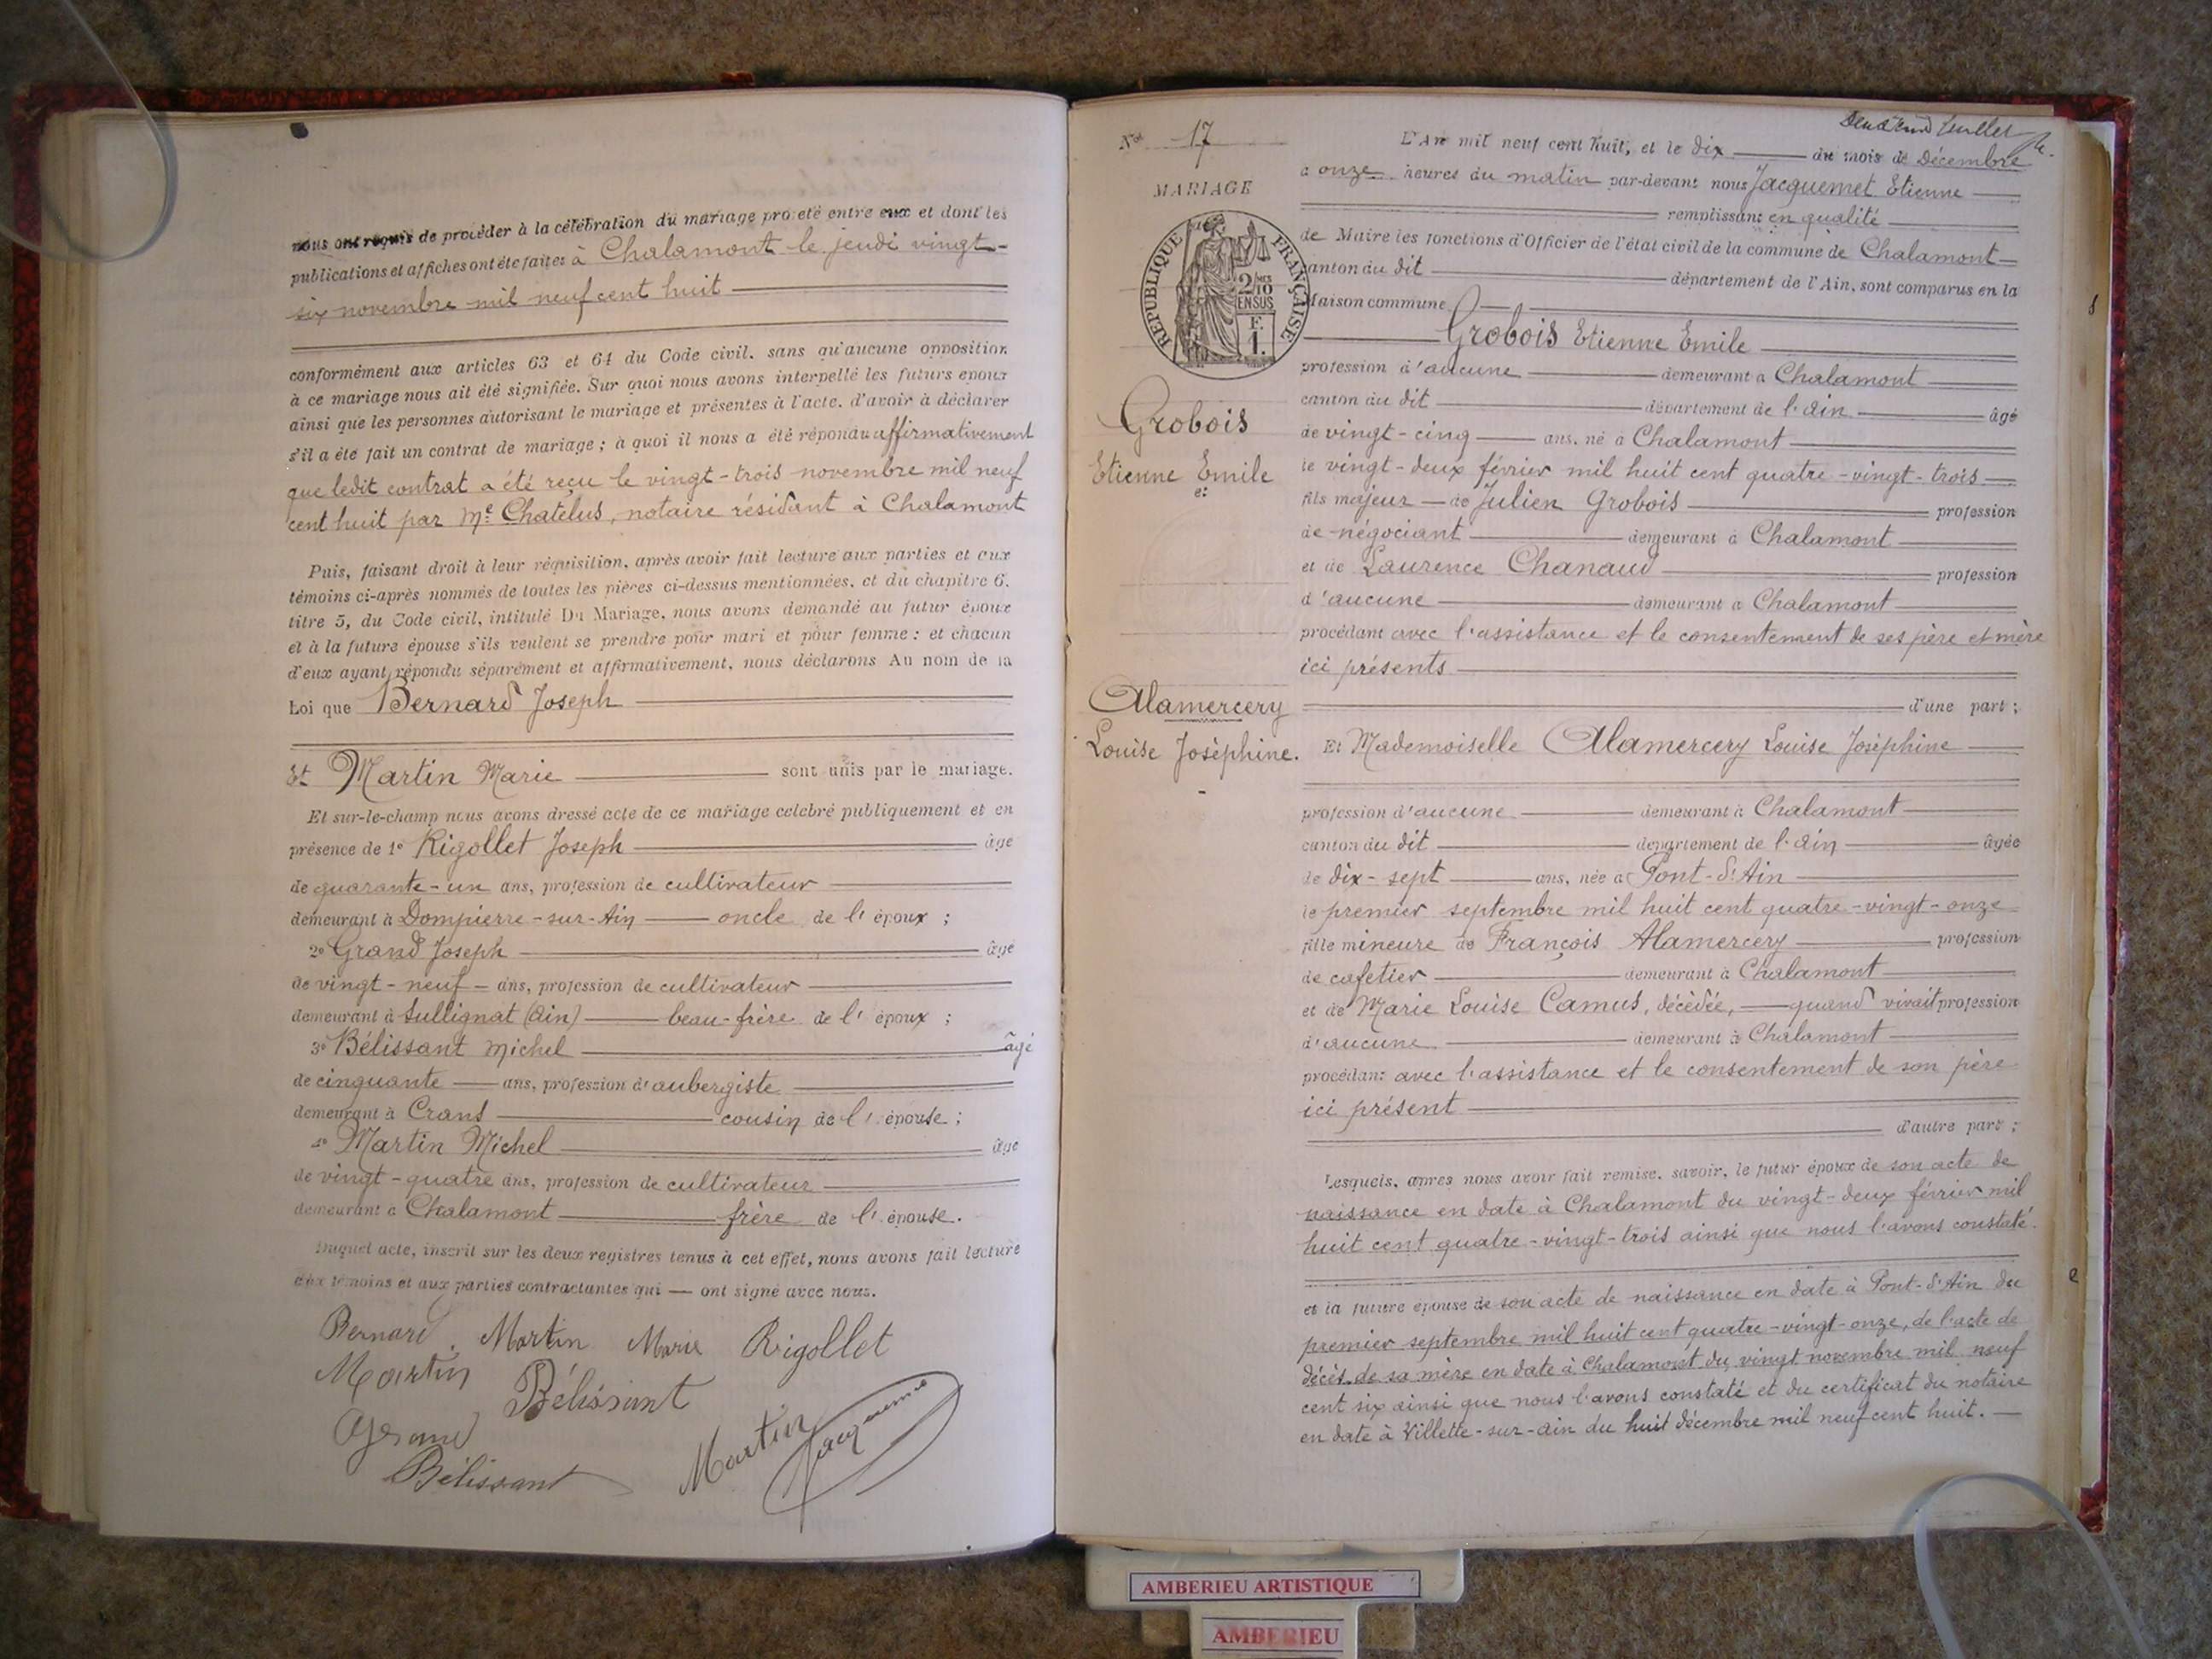 nous ont requis de procéder à la célébration du mariage projeté entre eux et dont les
publications et affiches ont été faites à Chalamont le jeudi vingt-
six novembre mil neuf cent huit
conformément aux articles 63 et 64 du Code civil, sans qu'aucune opposition
à ce mariage nous ait été signifiée. Sur quoi nous avons interpellé les futurs époux
ainsi que les personnes autorisant le mariage et présentes à l'acte, d'avoir à déclarer
s'il a été fait un contrat de mariage ; à quoi il nous a été répondu affirmativement
que ledit contrat a été reçu le vingt-trois novembre mil neuf
cent huit par Me Chatelus, notaire résidant à Chalamont
Puis, faisant droit à leur réquisition, après avoir fait lecture aux parties et aux
témoins ci-après nommés de toutes les pièces ci-dessus mentionnées, et du chapitre 6,
titre 5, du Code civil, intitulé Du Mariage, nous avons demandé au futur époux
et à la future épouse s'ils veulent se prendre pour mari et pour femme : et chacun
d'eux ayant répondu séparément et affirmativement, nous déclarons Au nom de la
Loi que Bernard Joseph
Et Martin Marie sont unis par le mariage.
Et sur-le-champ nous avons dressé acte de ce mariage célébré publiquement et en
présence de 1° Rigollet Joseph âgé
de quarante-un ans, profession de cultivateur
demeurant à Dompierre-sur-Ain oncle de l' époux ;
2° Grand Joseph âgé
de vingt-neuf ans, profession de cultivateur
demeurant à Sullignat (Ain) beau-frère de l' époux ;
3° Bélissant Michel âgé
de cinquante ans, profession d'aubergiste
demeurant à Crans cousin de l' épouse ;
4° Martin Michel âgé
de vingt-quatre ans, profession de cultivateur
demeurant à Chalamont frère de l' épouse.
Duquel acte, inscrit sur les deux registres tenus à cet effet, nous avons fait lecture
aux témoins et aux parties contractantes qui — ont signé avec nous.
Bernard Martin Marie Rigollet
Martin Bélissant
Grand
Bélissant Martin
N° 17
MARIAGE
REPUBLIQUE FRANÇAISE
2/10 MES
EN SUS
F.
1.
Grobois
Etienne Emile
et
Alamercery
Louise Joséphine.
L'An mil neuf cent huit, et le dix du mois de Décembre
à onze heures du matin par-devant nous Jacquemet Etienne
remplissant en qualité
de Maire les fonctions d'Officier de l'état civil de la commune de Chalamont
canton du dit département de l'Ain, sont comparus en la
Maison commune
Grobois Etienne Emile
profession d'aucune demeurant à Chalamont
canton du dit département de l'Ain âgé
de vingt-cinq ans, né à Chalamont
le vingt-deux février mil huit cent quatre-vingt-trois
fils majeur de Julien Grobois profession
de négociant demeurant à Chalamont
et de Laurence Chanaud profession
d'aucune demeurant à Chalamont
procédant avec l'assistance et le consentement de ses père et mère
ici présents
d'une part ;
Et Mademoiselle Alamercery Louise Joséphine
profession d'aucune demeurant à Chalamont
canton du dit département de l'Ain âgée
de dix-sept ans, née à Pont-d'Ain
le premier septembre mil huit cent quatre-vingt-onze
fille mineure de François Alamercery profession
de cafetier demeurant à Chalamont
et de Marie Louise Camus, décédée, quand vivait profession
d'aucune demeurant à Chalamont
procédant avec l'assistance et le consentement de son père
ici présent
d'autre part ;
Lesquels, après nous avoir fait remise, savoir, le futur époux de son acte de
naissance en date à Chalamont du vingt-deux février mil
huit cent quatre-vingt-trois ainsi que nous l'avons constaté.
et la future épouse de son acte de naissance en date à Pont-d'Ain du
premier septembre mil huit cent quatre-vingt-onze, de l'acte de
décès de sa mère en date à Chalamont du vingt novembre mil neuf
cent six ainsi que nous l'avons constaté et du certificat du notaire
en date à Villette-sur-Ain du huit décembre mil neuf cent huit.
AMBERIEU ARTISTIQUE
AMBERIEU